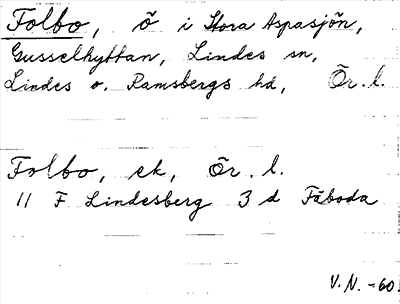 Folbo, ö i Stora Aspasjön,
Gusselhyttan, Lindes sn,
Lindes o. Ramsbergs hd, Ör. l.
Folbo, ek, Ör. l.
11 F Lindesberg 3 d Fäboda
V.N. -60